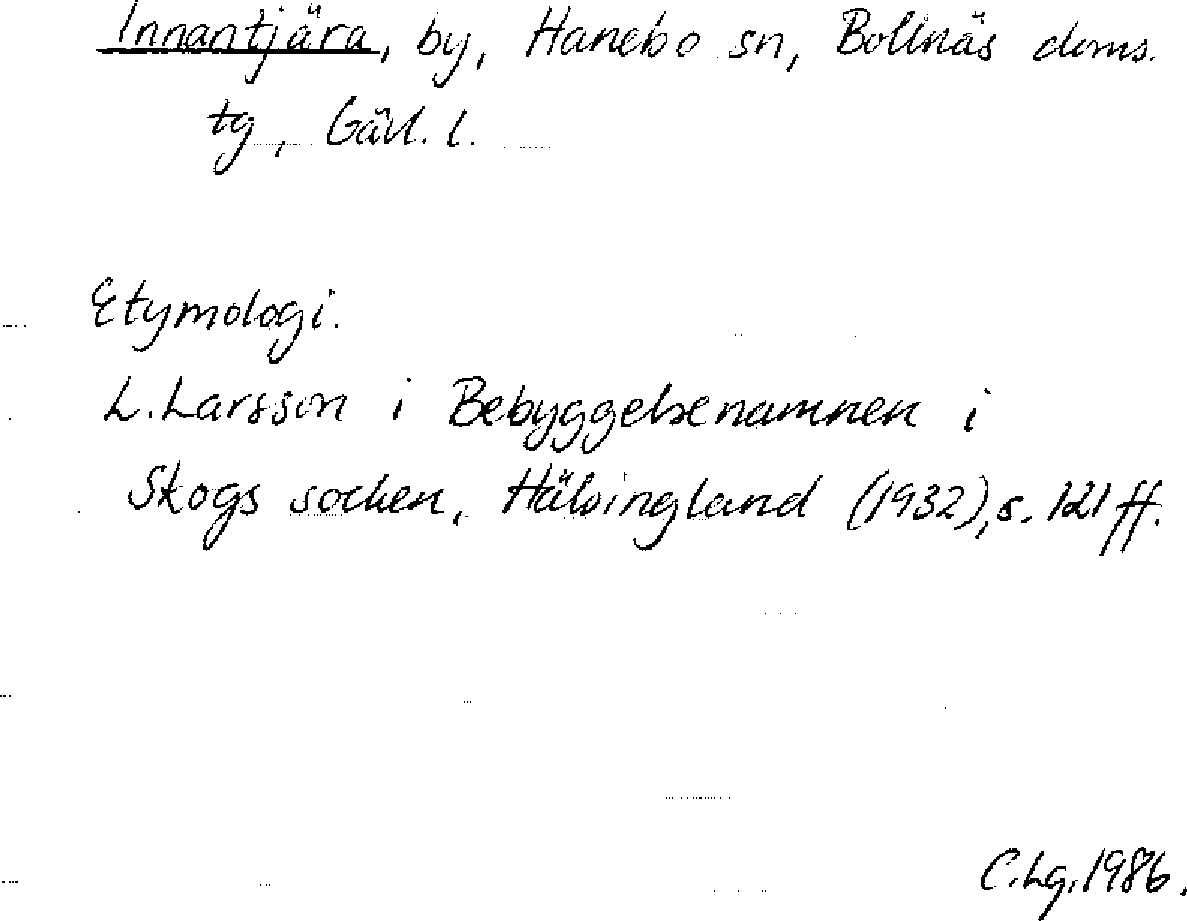 Innantjära, by, Hanebo sn, Bollnäs doms.
tg, Gävl. l.
Etymologi.
L. Larsson i Bebyggelsenamnen i
Skogs socken, Hälsingland (1932), s. 121 ff.
C.Lg. 1986.